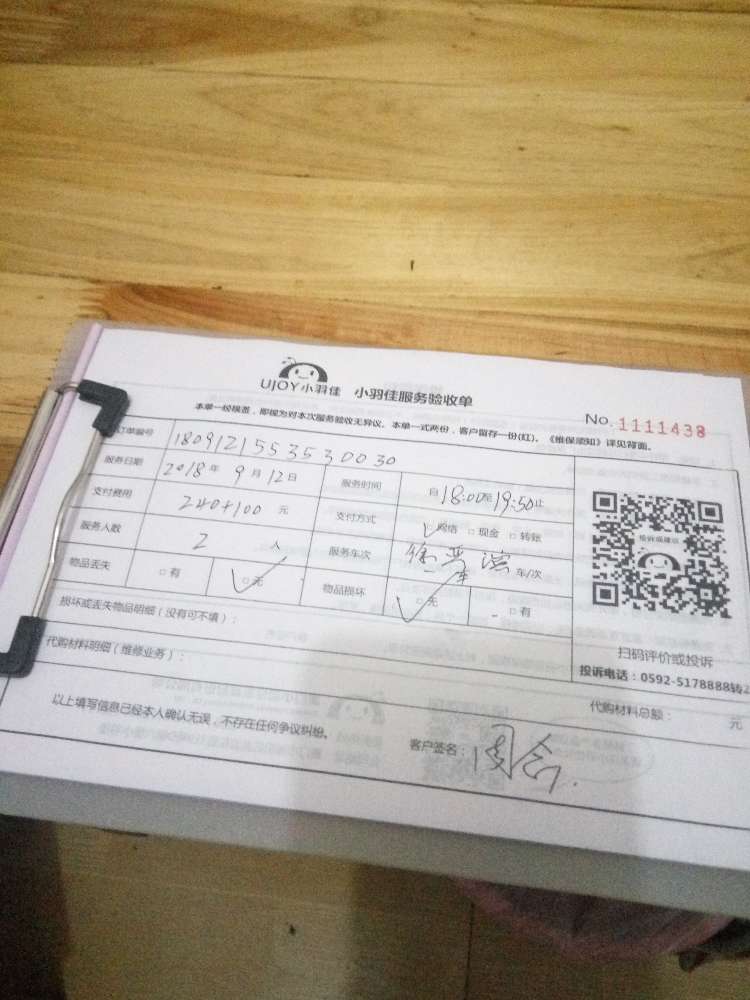 UJOY小羽佳 小羽佳服务验收单
No. 1111438
本单一经核准，即视为对本次服务验收无异议。本单一式两份，客户留存一份(红)。《维保须知》详见背面。
订单编号 1809121553530030
服务日期 2018年9月12日 服务时间 自18:00至19:50止
支付费用 240+100 元 支付方式 网络 □ 现金 □ 转账
服务人数 2 人 服务车次 车/次
物品丢失 □ 有 □ 无 物品损坏 □ 无 □ 有
损坏或丢失物品明细（没有可不填）：
代购材料明细（维修业务）：
扫码评价或投诉
投诉电话：0592-5178888转
代购材料总额： 元
以上填写信息已经本人确认无误，不存在任何争议纠纷。
客户签名：